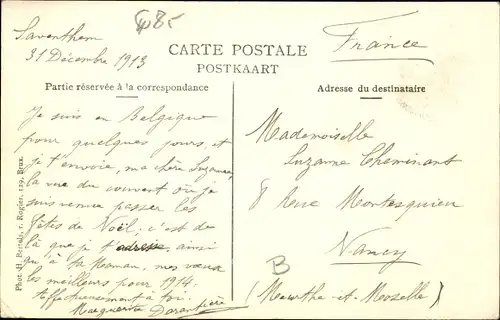 Saventhem
31 Décembre 1913
CARTE POSTALE
POSTKAART
France
Partie réservée à la correspondance
Adresse du destinataire
Je suis en Belgique
pour quelques jours, et
je t'envoie, ma chère Suzanne,
la vue du couvent où je
suis venue passer les
fêtes de Noël, c'est de
là que je t'adresse, ainsi
qu'à ta Maman, mes vœux
les meilleurs pour 1914.
Affectueusement à toi.
Marguerite
Mademoiselle
Suzanne Cheminant
8 Rue Montesquieu
Nancy
B
(Meurthe-et-Moselle)
Phot. H. Bertels, r. Rogier, 129, Brux.